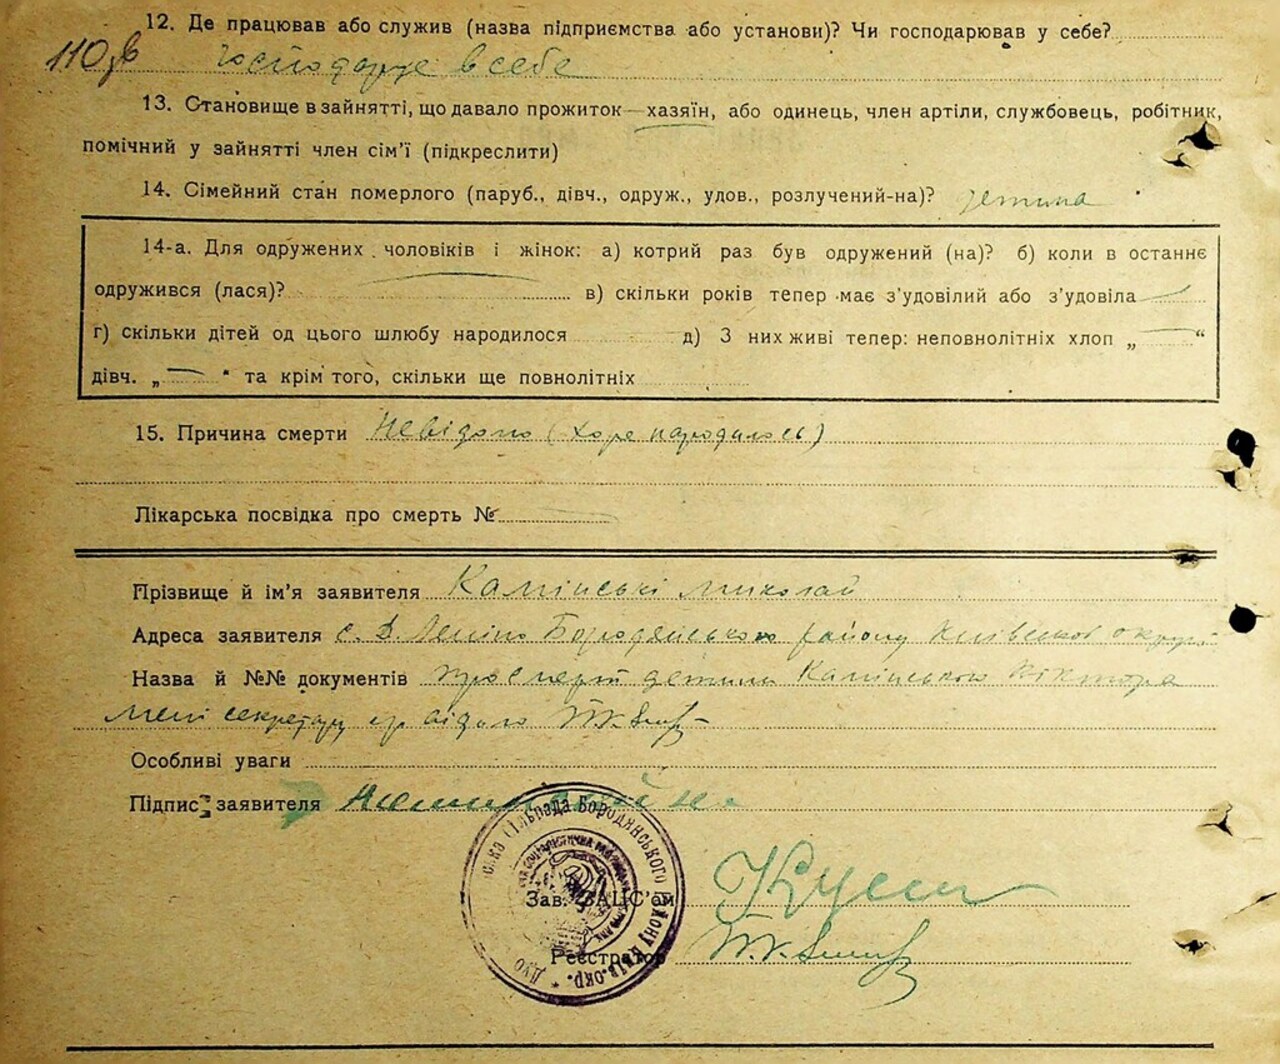 12. Де працював або служив (назва підприємства або установи)? Чи господарював у себе?
110 зв господарує в себе
13. Становище в зайнятті, що давало прожиток—хазяїн, або одинець, член артіли, службовець, робітник,
помічний у зайнятті член сім'ї (підкреслити)
14. Сімейний стан померлого (паруб., дівч., одруж., удов., розлучений-на)? детина
14-а. Для одружених чоловіків і жінок: а) котрий раз був одружений (на)? б) коли в останнє
одружився (лася)? в) скільки років тепер має з'удовілий або з'удовіла
г) скільки дітей од цього шлюбу народилося д) З них живі тепер: неповнолітніх хлоп „ “
дівч. „ “ та крім того, скільки ще повнолітніх
15. Причина смерти Невідомо (хоре народилось)
Лікарська посвідка про смерть №
Прізвище й ім'я заявителя Камінські Миколай
Адреса заявителя с. Бородянського району Київської округи
Назва й №№ документів про смерть детини Камінського Віктора
мені секретару ср відомо
Особливі уваги
Підпис заявителя
сільрада Бородянського району Київ. окр.
Зав. ЗАЦС'ом
Реєстратор